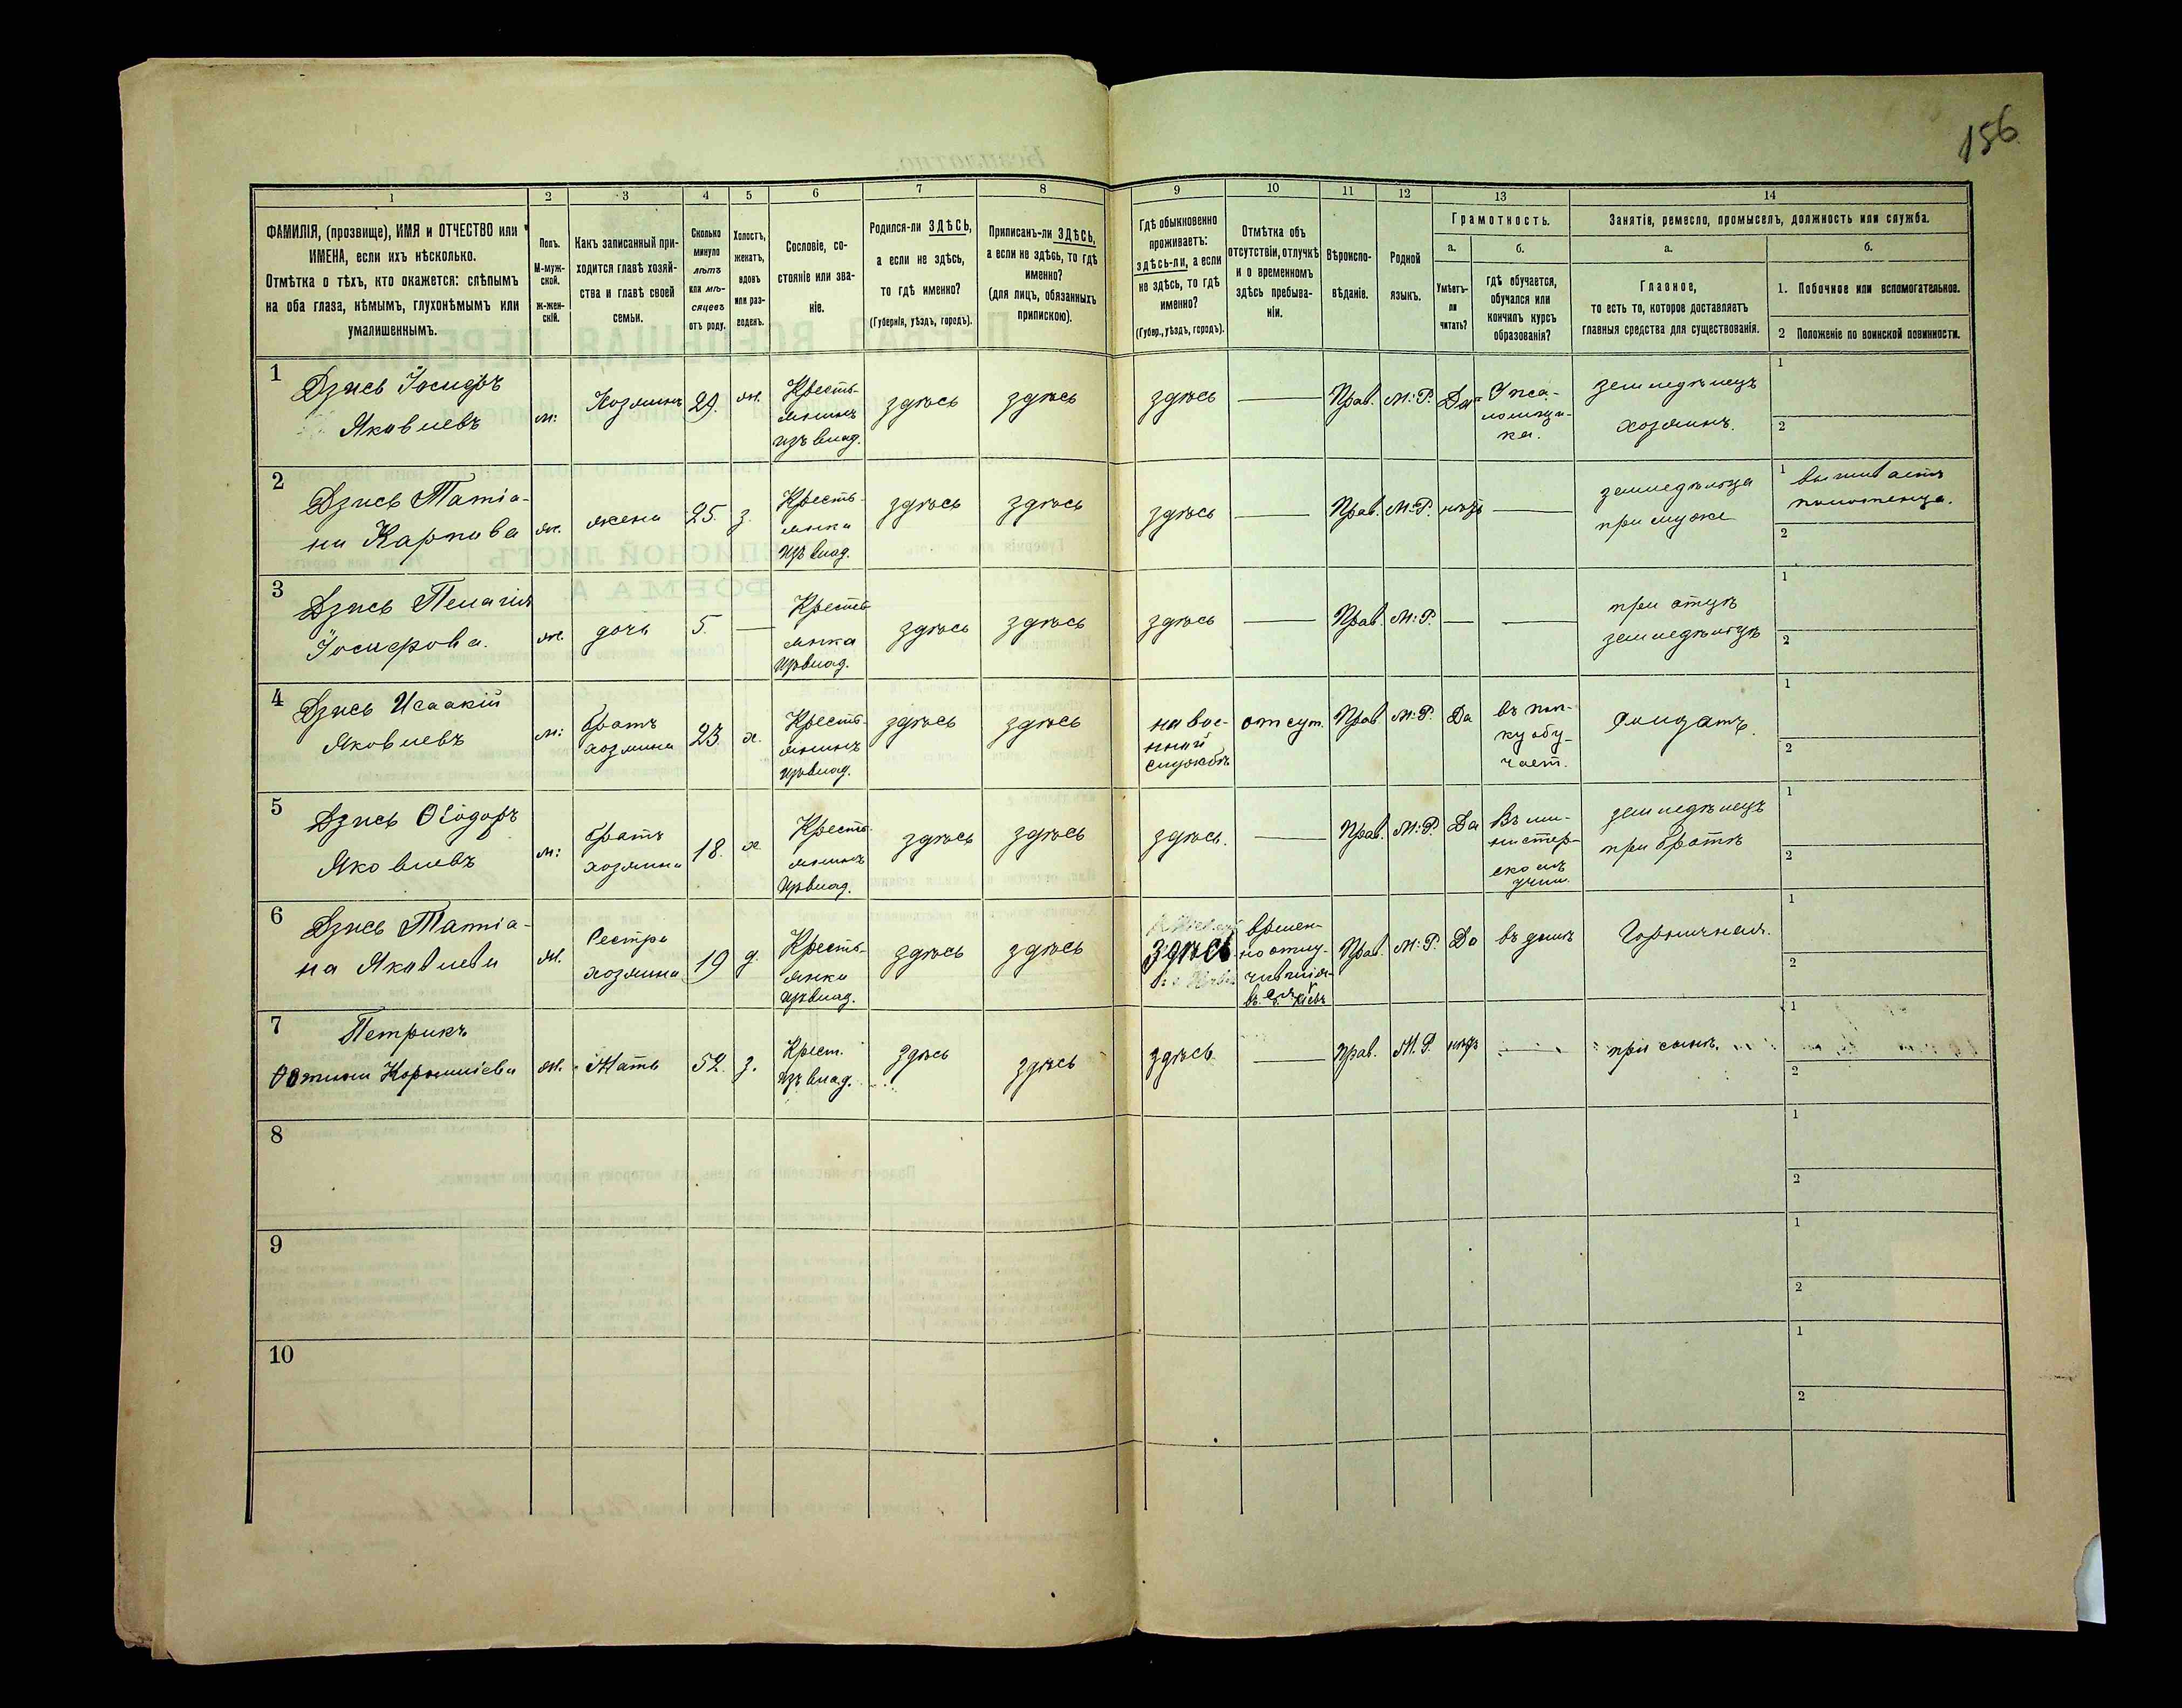 156
1 2 3 4 5 6 7 8 9 10 11 12 13 14
ФАМИЛІЯ, (прозвище), ИМЯ и ОТЧЕСТВО или
ИМЕНА, если ихъ нѣсколько.
Отмѣтка о тѣхъ, кто окажется: слѣпымъ
на оба глаза, нѣмымъ, глухонѣмымъ или
умалишеннымъ.
Полъ.
М-муж-
ской.
Ж-жен-
скій.
Какъ записанный при-
ходится главѣ хозяй-
ства и главѣ своей
семьи.
Сколько
минуло
лѣтъ
или мѣ-
сяцевъ
отъ роду.
Холостъ,
женатъ,
вдовъ
или раз-
веденъ.
Сословіе, со-
стояніе или зва-
ніе.
Родился-ли ЗДѢСЬ,
а если не здѣсь,
то гдѣ именно?
(Губернія, уѣздъ, городъ).
Приписанъ-ли ЗДѢСЬ,
а если не здѣсь, то гдѣ
именно?
(для лицъ, обязанныхъ
припискою).
Гдѣ обыкновенно
проживаетъ:
здѣсь-ли, а если
не здѣсь, то гдѣ
именно?
(Губер., уѣздъ, городъ).
Отмѣтка объ
отсутствіи, отлучкѣ
и о временномъ
здѣсь пребыва-
ніи.
Вѣроиспо-
вѣданіе.
Родной
языкъ.
Грамотность.
а.
Умѣетъ-
ли
читать?
б.
гдѣ обучается,
обучался или
кончилъ курсъ
образованія?
Занятіе, ремесло, промыселъ, должность или служба.
а.
Главное,
то есть то, которое доставляетъ
главныя средства для существованія.
б.
1. Побочное или вспомогательное.
2 Положеніе по воинской повинности.
1
Дзись Іосифъ
Яковлевъ
м:
Хозяинъ
29.
ж.
Кресть-
янинъ
изъ влад.
здѣсь
здѣсь
здѣсь
—
Прав.
М: Р.
Да
У пса-
ломщи-
ка.
земледѣлецъ
хозяинъ.
1
2
2
Дзись Татіа-
на Карпова
ж.
жена
25.
з.
Кресть-
янка
изъ влад.
здѣсь
здѣсь
здѣсь
—
Прав.
М: Р.
нѣтъ
—
земледѣлица
при мужѣ
1
вышиваетъ
полотенца.
2
3
Дзись Пелагія
Іосифова.
ж.
дочь
5.
—
Кресть-
янка
изъ влад.
здѣсь
здѣсь
здѣсь
—
Прав.
М: Р.
—
—
при отцѣ
земледѣльцѣ
1
2
4
Дзись Исаакій
Яковлевъ
м:
братъ
хозяина
23.
х.
Кресть-
янинъ
изъ влад.
здѣсь
здѣсь
на вое-
нной
службѣ
отсут.
Прав.
М: Р.
Да
въ пол-
ку обу-
чает.
Солдатъ.
1
2
5
Дзись Ѳеодоръ
Яковлевъ
м:
братъ
хозяина
18.
х.
Кресть-
янинъ
изъ влад.
здѣсь
здѣсь
здѣсь.
—
Прав.
М: Р.
Да
Въ ми-
нистер-
скомъ
учил.
земледѣлецъ
при братѣ
1
2
6
Дзись Татіа-
на Яковлева
ж.
Сестра
хозяина
19
д.
Кресть-
янка
изъ влад.
здѣсь
здѣсь
здѣсь
времен-
но отлу-
чившаяся
Кіевъ
Прав.
М: Р.
Да
въ домѣ
Горничная.
1
2
7
Петрикъ
Корниліева
ж.
Мать
52.
з.
Крест.
изъ влад.
здѣсь
здѣсь
здѣсь
—
Прав.
М. Р.
нѣтъ
—
при сынѣ.
1
2
8
1
2
9
1
2
10
1
2